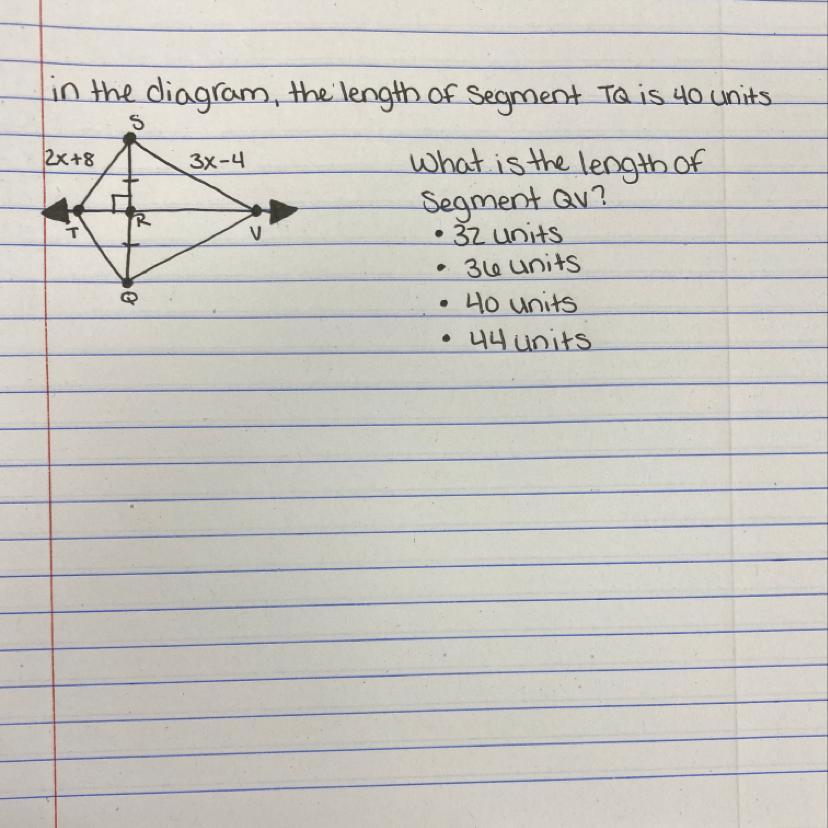 in the diagram, the length of segment TQ is 40 units
S
2x+8
3x-4
T
R
V
Q
What is the length of
segment QV?
• 32 units
• 36 units
• 40 units
• 44 units